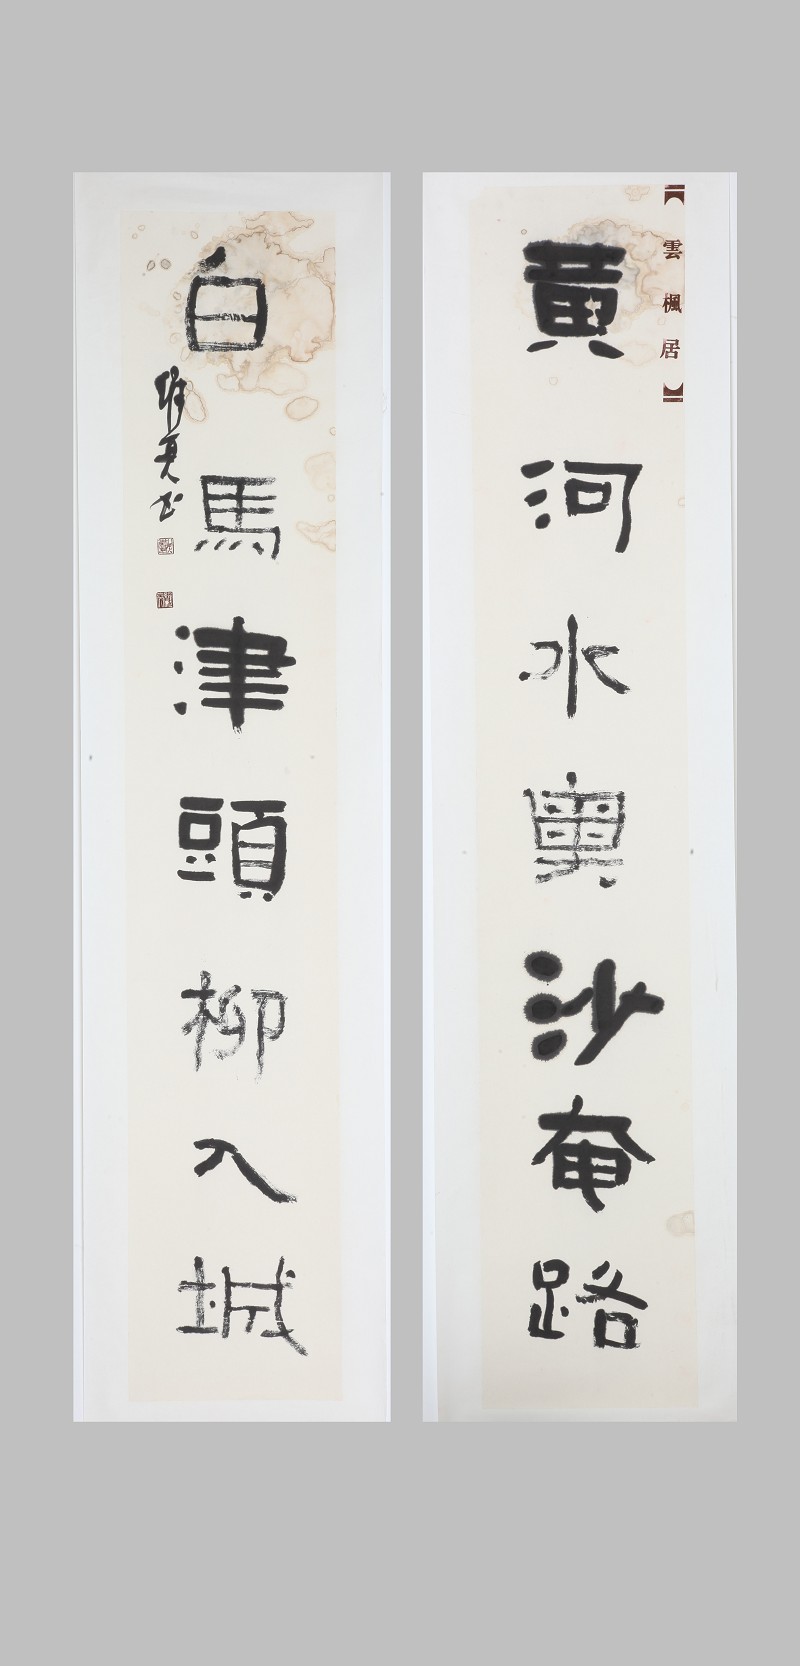 雲楓居
黃河水奧沙奄路
白馬津頭柳入城